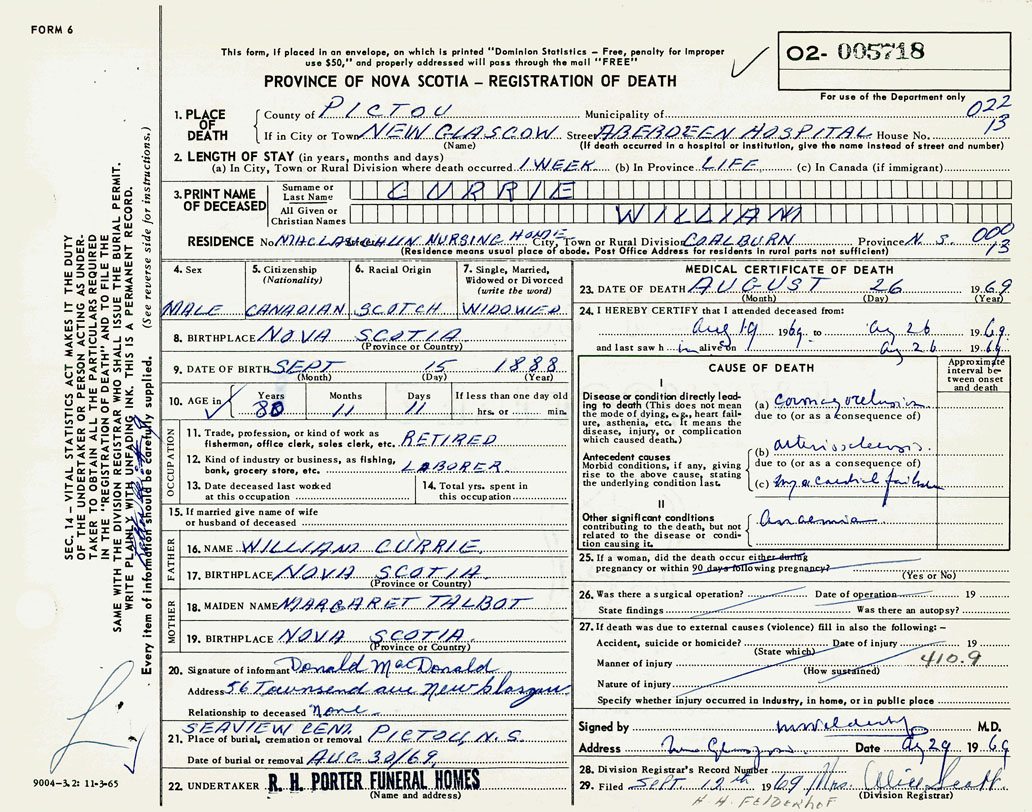 FORM 6
This form, if placed in an envelope, on which is printed "Dominion Statistics – Free, penalty for improper
use $50," and properly addressed will pass through the mail "FREE"
O2- 005718
PROVINCE OF NOVA SCOTIA – REGISTRATION OF DEATH
For use of the Department only
022
13
1. PLACE OF DEATH
County of PICTOU Municipality of
If in City or Town NEW GLASGOW Street ABERDEEN HOSPITAL House No.
(Name) (If death occurred in a hospital or institution, give the name instead of street and number)
2. LENGTH OF STAY (in years, months and days)
(a) In City, Town or Rural Division where death occurred 1 WEEK (b) In Province LIFE (c) In Canada (if immigrant)
3. PRINT NAME OF DECEASED
Surname or Last Name CURRIE
All Given or Christian Names WILLIAM
RESIDENCE No. MACLAUGHLIN NURSING HOME Street City, Town or Rural Division COALBURN Province N. S.
000
13
(Residence means usual place of abode. Post Office Address for residents in rural parts not sufficient)
4. Sex
MALE
5. Citizenship
(Nationality)
CANADIAN
6. Racial Origin
SCOTCH
7. Single, Married,
Widowed or Divorced
(write the word)
WIDOWED
8. BIRTHPLACE NOVA SCOTIA
(Province or Country)
9. DATE OF BIRTH SEPT 15 1888
(Month) (Day) (Year)
10. AGE in
Years Months Days If less than one day old
80 11 11 hrs. or min.
OCCUPATION
11. Trade, profession, or kind of work as
fisherman, office clerk, sales clerk, etc. RETIRED
12. Kind of industry or business, as fishing,
bank, grocery store, etc. LABORER.
13. Date deceased last worked
at this occupation
14. Total yrs. spent in
this occupation
15. If married give name of wife
or husband of deceased
FATHER
16. NAME WILLIAM CURRIE.
17. BIRTHPLACE NOVA SCOTIA.
(Province or Country)
MOTHER
18. MAIDEN NAME MARGARET TALBOT
19. BIRTHPLACE NOVA SCOTIA
(Province or Country)
20. Signature of informant Donald MacDonald
Address 56 Townsend ave New Glasgow
Relationship to deceased None
SEAVIEW CEM.
21. Place of burial, cremation or removal PICTOU, N.S.
Date of burial or removal AUG 30/69.
22. UNDERTAKER R. H. PORTER FUNERAL HOMES
(Name and address)
MEDICAL CERTIFICATE OF DEATH
23. DATE OF DEATH AUGUST 26 1969
(Month) (Day) (Year)
24. I HEREBY CERTIFY that I attended deceased from:
Aug 19 1969 to Aug 26 1969
and last saw h im alive on Aug 26 1969
CAUSE OF DEATH
Approximate
interval between
onset
and death
I
Disease or condition directly leading
to death (This does not mean
the mode of dying, e.g., heart failure,
asthenia, etc. It means the
disease, injury, or complication
which caused death.)
(a)
due to (or as a consequence of)
Antecedent causes
Morbid conditions, if any, giving
rise to the above cause, stating
the underlying condition last.
(b) arteriosclerosis.
due to (or as a consequence of)
(c) myocardial failure
II
Other significant conditions
contributing to the death, but not
related to the disease or condition
causing it.
Anaemia
25. If a woman, did the death occur either during
pregnancy or within 90 days following pregnancy?
(Yes or No)
26. Was there a surgical operation? Date of operation 19
State findings Was there an autopsy?
27. If death was due to external causes (violence) fill in also the following: –
Accident, suicide or homicide? Date of injury 19
(State which)
Manner of injury 410.9
(How sustained)
Nature of injury
Specify whether injury occurred in industry, in home, or in public place
Signed by M.D.
Address New Glasgow. Date Aug 29 1969
28. Division Registrar's Record Number
29. Filed Sept. 12th 1969 Mrs. Alice Scott
(Division Registrar)
H. H. FELDERHOF
SEC. 14 – VITAL STATISTICS ACT MAKES IT THE DUTY
OF THE UNDERTAKER OR PERSON ACTING AS UNDERTAKER
TO OBTAIN ALL THE PARTICULARS REQUIRED
IN THE "REGISTRATION OF DEATH" AND TO FILE THE
SAME WITH THE DIVISION REGISTRAR WHO SHALL ISSUE THE BURIAL PERMIT.
WRITE PLAINLY WITH UNFADING INK. THIS IS A PERMANENT RECORD.
Every item of information should be carefully supplied. (See reverse side for instructions.)
9004-3.2: 11-3-65